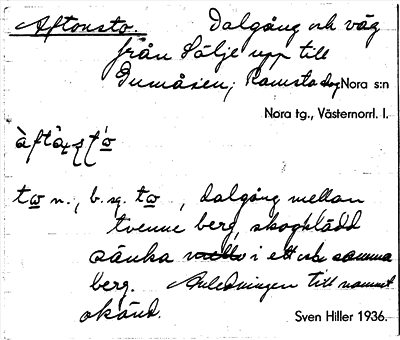 Aftonsto. Dalgång och väg
från Sälje upp till
Gumåsen; Ramsta by, Nora s:n
Nora tg., Västernorrl. l.
to n., b. sg. to, dalgång mellan
tvenne berg, skogklädd
sänka i ett och samma
berg. Anledningen till namnet
okänd. Sven Hiller 1936.